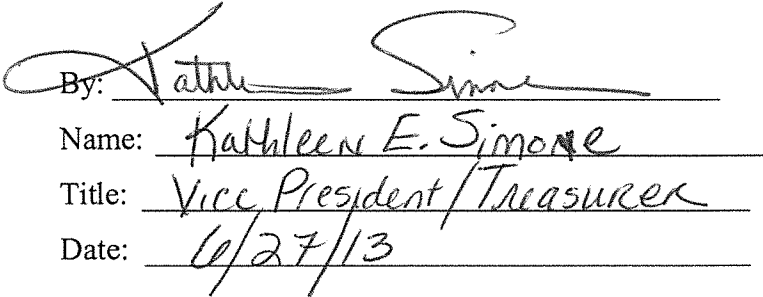 By: Kathleen Simone
Name: Kathleen E. Simone
Title: Vice President/Treasurer
Date: 6/27/13